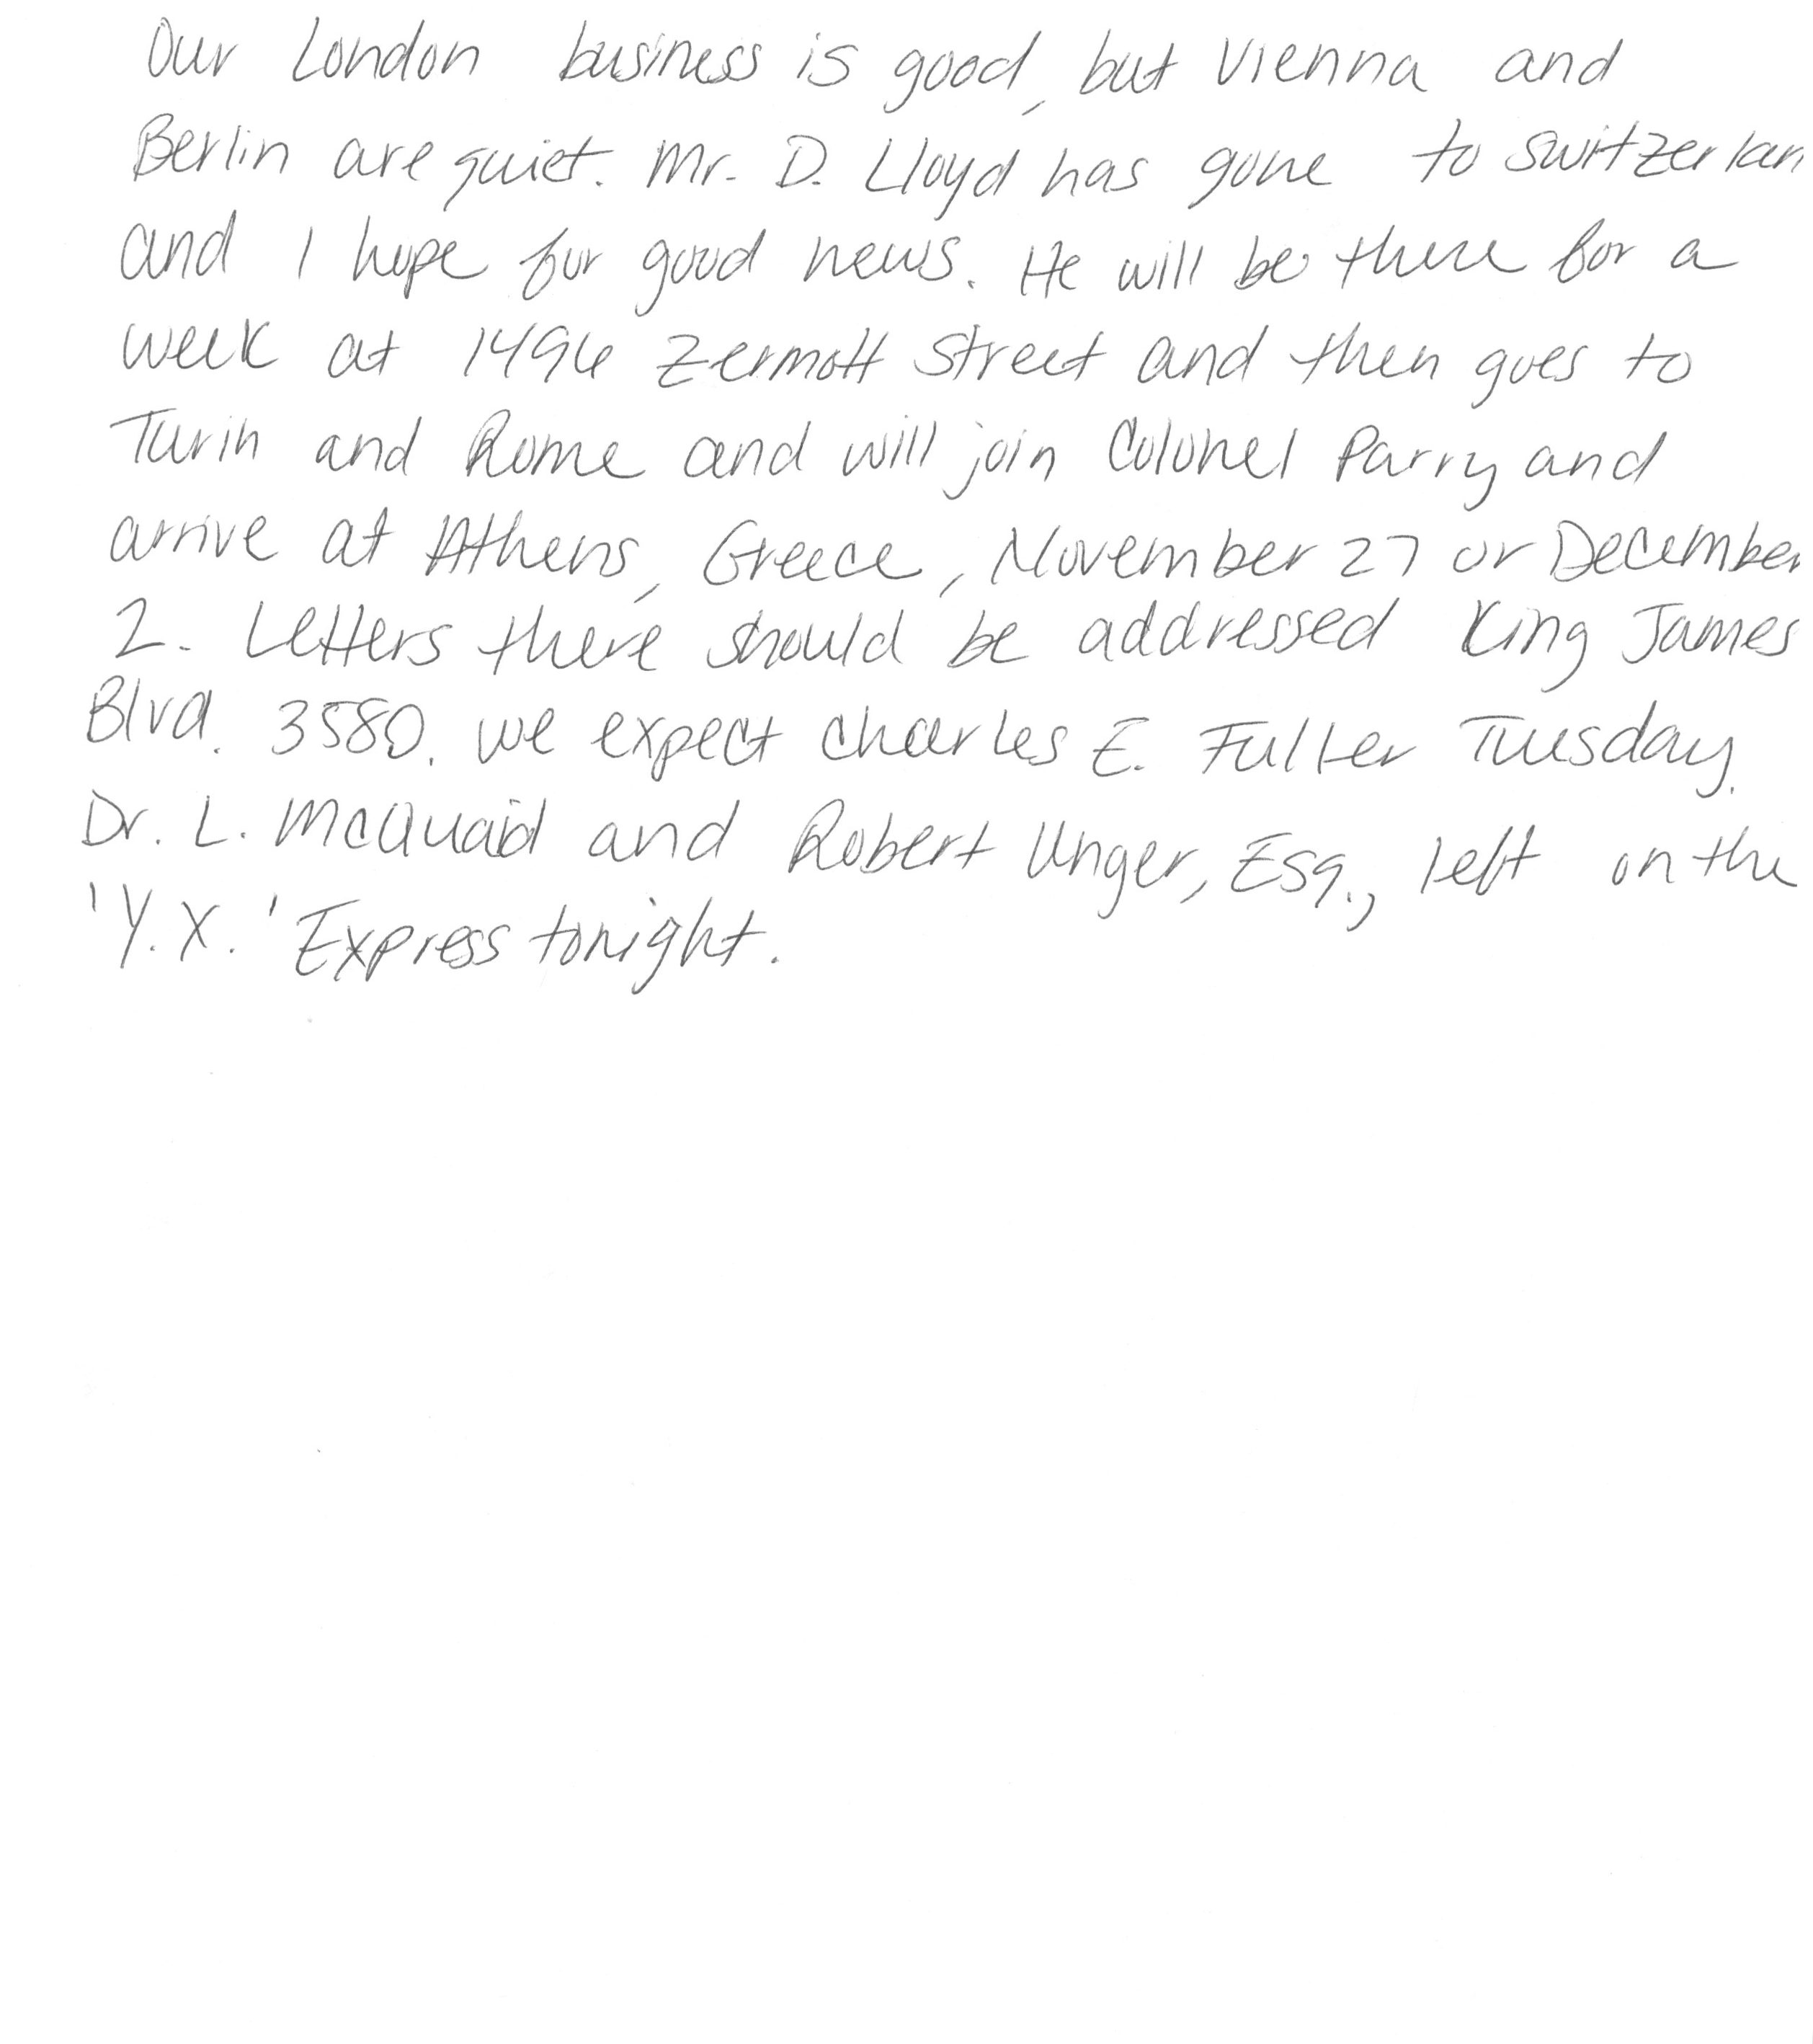 Our London business is good, but Vienna and
Berlin are quiet. Mr. D. Lloyd has gone to Switzerlan
and I hope for good news. He will be there for a
week at 1496 Zermott Street and then goes to
Turin and Rome and will join Colonel Parry and
arrive at Athens, Greece, November 27 or December
2. Letters there should be addressed King James
Blvd. 3580. We expect Charles E. Fuller Tuesday.
Dr. L. McQuaid and Robert Unger, Esq., left on the
'Y.X.' Express tonight.